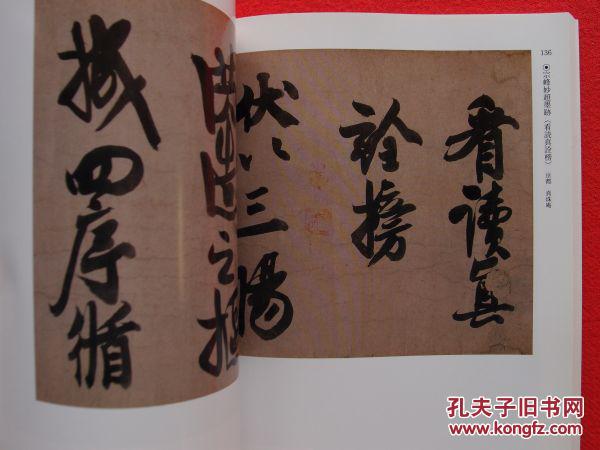 136
◉宗峰妙超墨跡（看読真詮榜） 京都 真珠庵
看讀真
詮榜
伏以三陽
之
四序循
孔夫子旧书网
www.kongfz.com